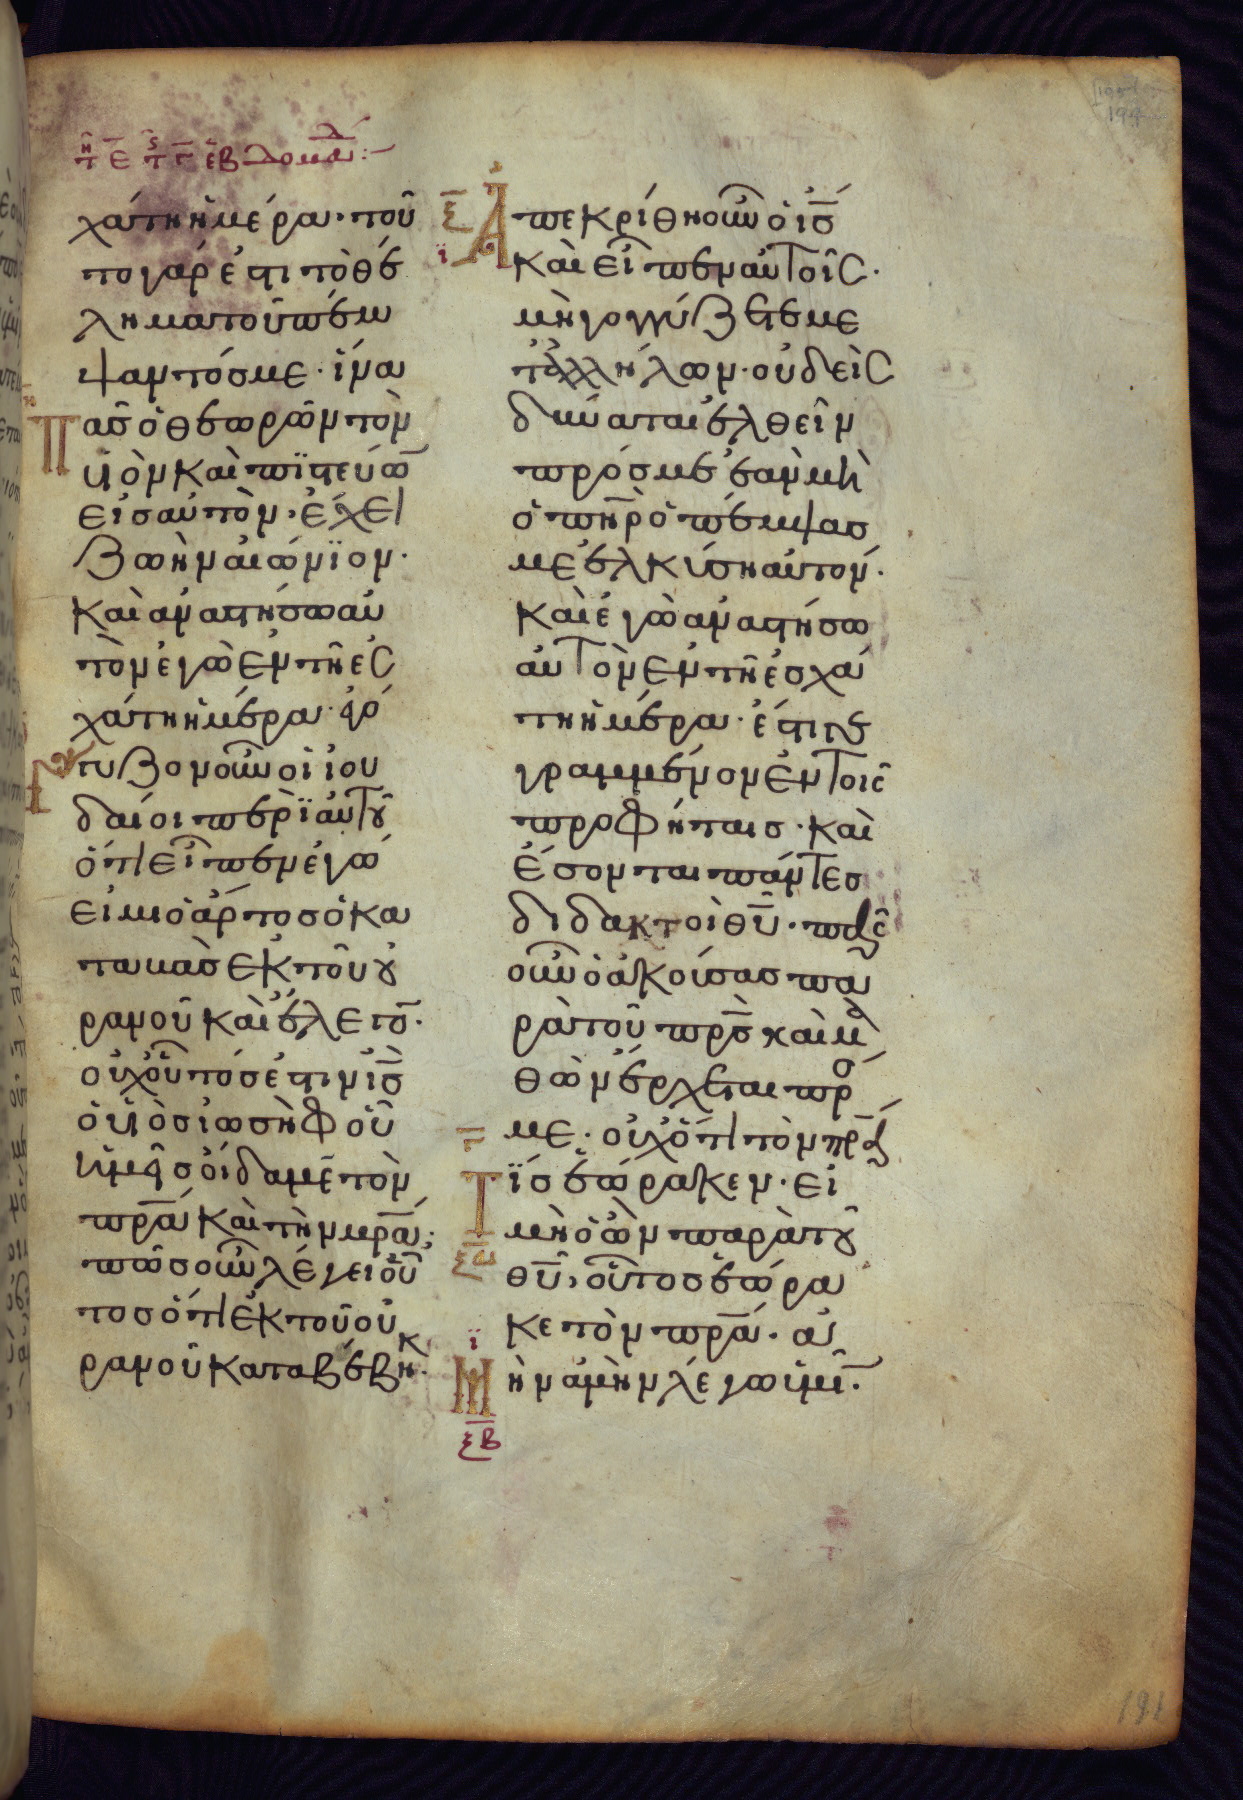 τῇ ε τῆς γ ἑβδομάδ :–
χάτη ἡμέρα· τοῦ
το γάρ ἐστι τὸ θέ
λημα τοῦ πέμ
ψαντόσ με· ἵνα
Πᾶσ ὁ θεωρῶν τὸν
υἱὸν καὶ πιστεύω̄
εἰσ αὐτὸν· ἔχει
ζωὴν αἰώνιον·
καὶ ἀναστήσω αὐ
τὸν ἐγὼ ἐν τῆ ἐσ
χάτη ἡμέρα· ἐγό
γγυζον οὖν οἱ ἰου
δαίοι περὶ αὐτοῦ
ὅτι εἶπεν ἐγώ
εἰμι ὁ ἄρτοσ ὁ κα
ταβὰσ ἐκ τοῦ οὐ
ρανοῦ καὶ ἔλεγο̄·
οὐχ οὗτόσ ἐστιν ῑσ̄
ὁ υἱὸσ ἰωσὴφ οὗ
ἡμεῖσ οἴδαμεν τὸν
πρ̄α καὶ τὴν μρ̄α;
πῶσ οὖν λέγει οὗ
τοσ ὅτι ἐκ τοῦ οὐ
ρανοῦ καταβέβηκ·
ξ̄
ϊ
Ἀπεκρίθη οὖν ὁ ῑσ̄
καὶ εἶπεν αὐτοῖσ·
μὴ γογγύζετε με
τ' ἀλλήλων· οὐδεὶσ
δύναται ἐλθεῖν
πρόσ με ἐὰν μὴ
ὁ π̄η̄ρ̄ ὁ πέμψασ
με ἑλκύση αὐτον·
καὶ ἐγὼ ἀναστήσω
αὐτὸν ἐν τῆ ἐσχά
τη ἡμέρα· ἔστι γε
γραμμένον ἐν τοῖσ
προφήταισ· καὶ
ἔσονται πάντεσ
διδακτοὶ θ̄ῡ· πᾶσ
οὖν ὁ ἀκούσασ πα
ρὰ τοῦ πρ̄σ καὶ μα
θὼν ἔρχεται πρό
με· οὐχ ὅτι τὸν πρ̄α
Τϊσ ἑώρακεν· εἰ
μὴ ὁ ὢν παρὰ τοῦ
ξ̄ᾱ
θ̄ῡ, οὗτοσ ἑώρα
κε τὸν πρ̄α· ἀ
ϊ
μὴν ἀμὴν λέγω ὑμῖ̄·
ξ̄β̄
191